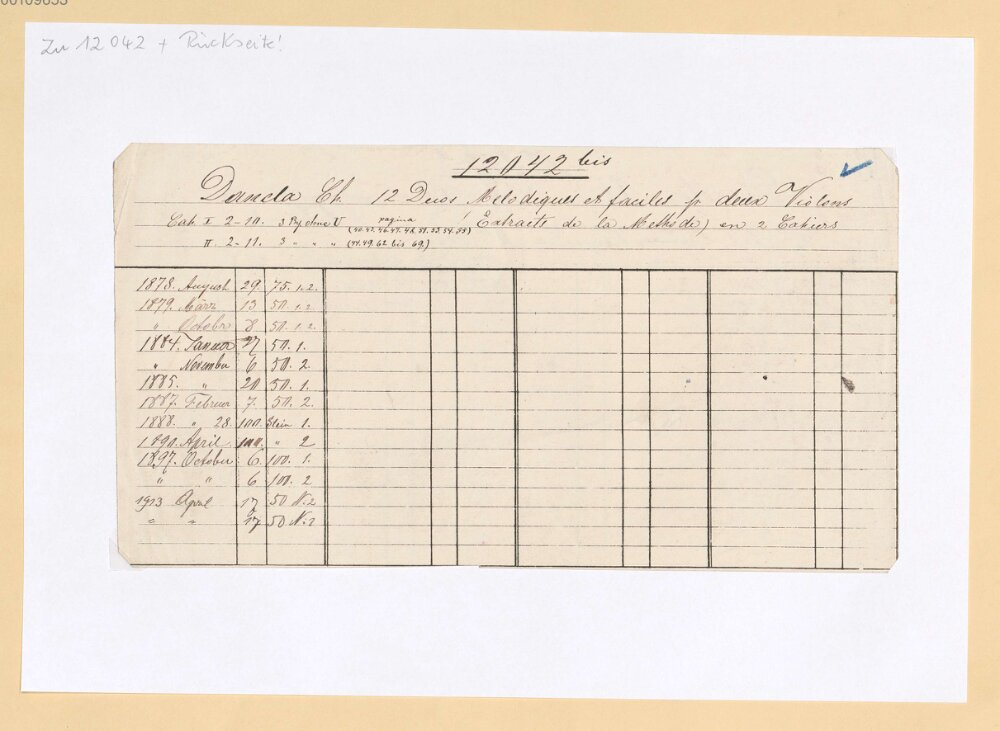 00109655
Zu 12 042 + Rückseite!
12042 bis
Dancla Ch. 12 Duos Melodiques et faciles p. deux Violons
Cah. I 2-10. 3 pagina Extraits de la Methode) en 2 Cahiers
II. 2-11. 3 " " " (44.49.62 bis 69.)
1878. August 29 75. 1.2.
1879. März 13 50. 1.2.
" Octobr 8 50. 1.2.
1884. Januar 27 50. 1.
" November 6 50. 2.
1885. " 20 50. 1.
1887. Februar 7. 50. 2.
1888. " 28. 100. Stein 1.
1890. April 100. " 2
1897. October 6. 100. 1.
" " 6 100. 2
1913 April 17 50 N. 2
" " 17 50 N.